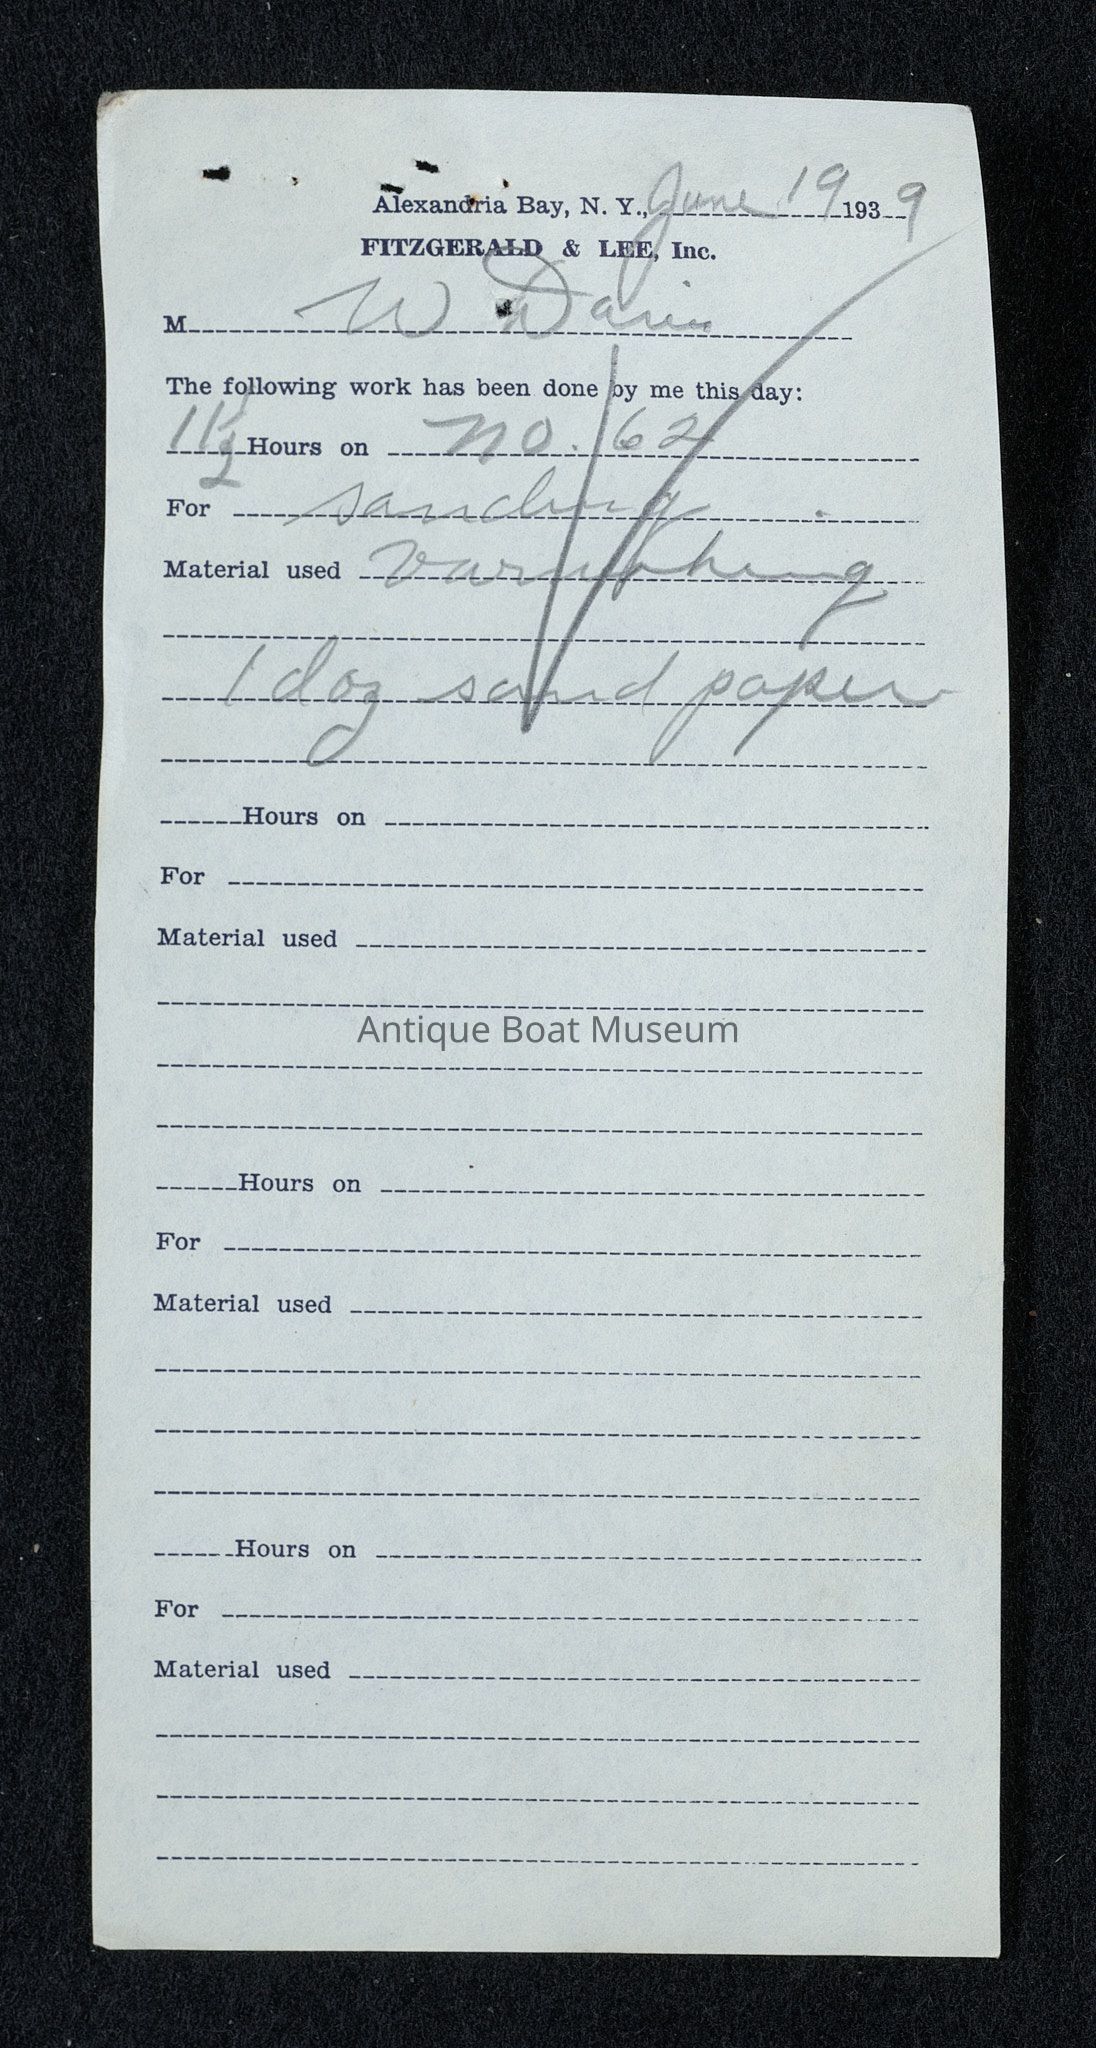 Alexandria Bay, N. Y., June 19 1939
FITZGERALD & LEE, Inc.
M W Davis
The following work has been done by me this day:
1 1/2 Hours on No. 62
For sanding
Material used varnishing
1 doz sand paper
Hours on
For
Material used
Antique Boat Museum
Hours on
For
Material used
Hours on
For
Material used